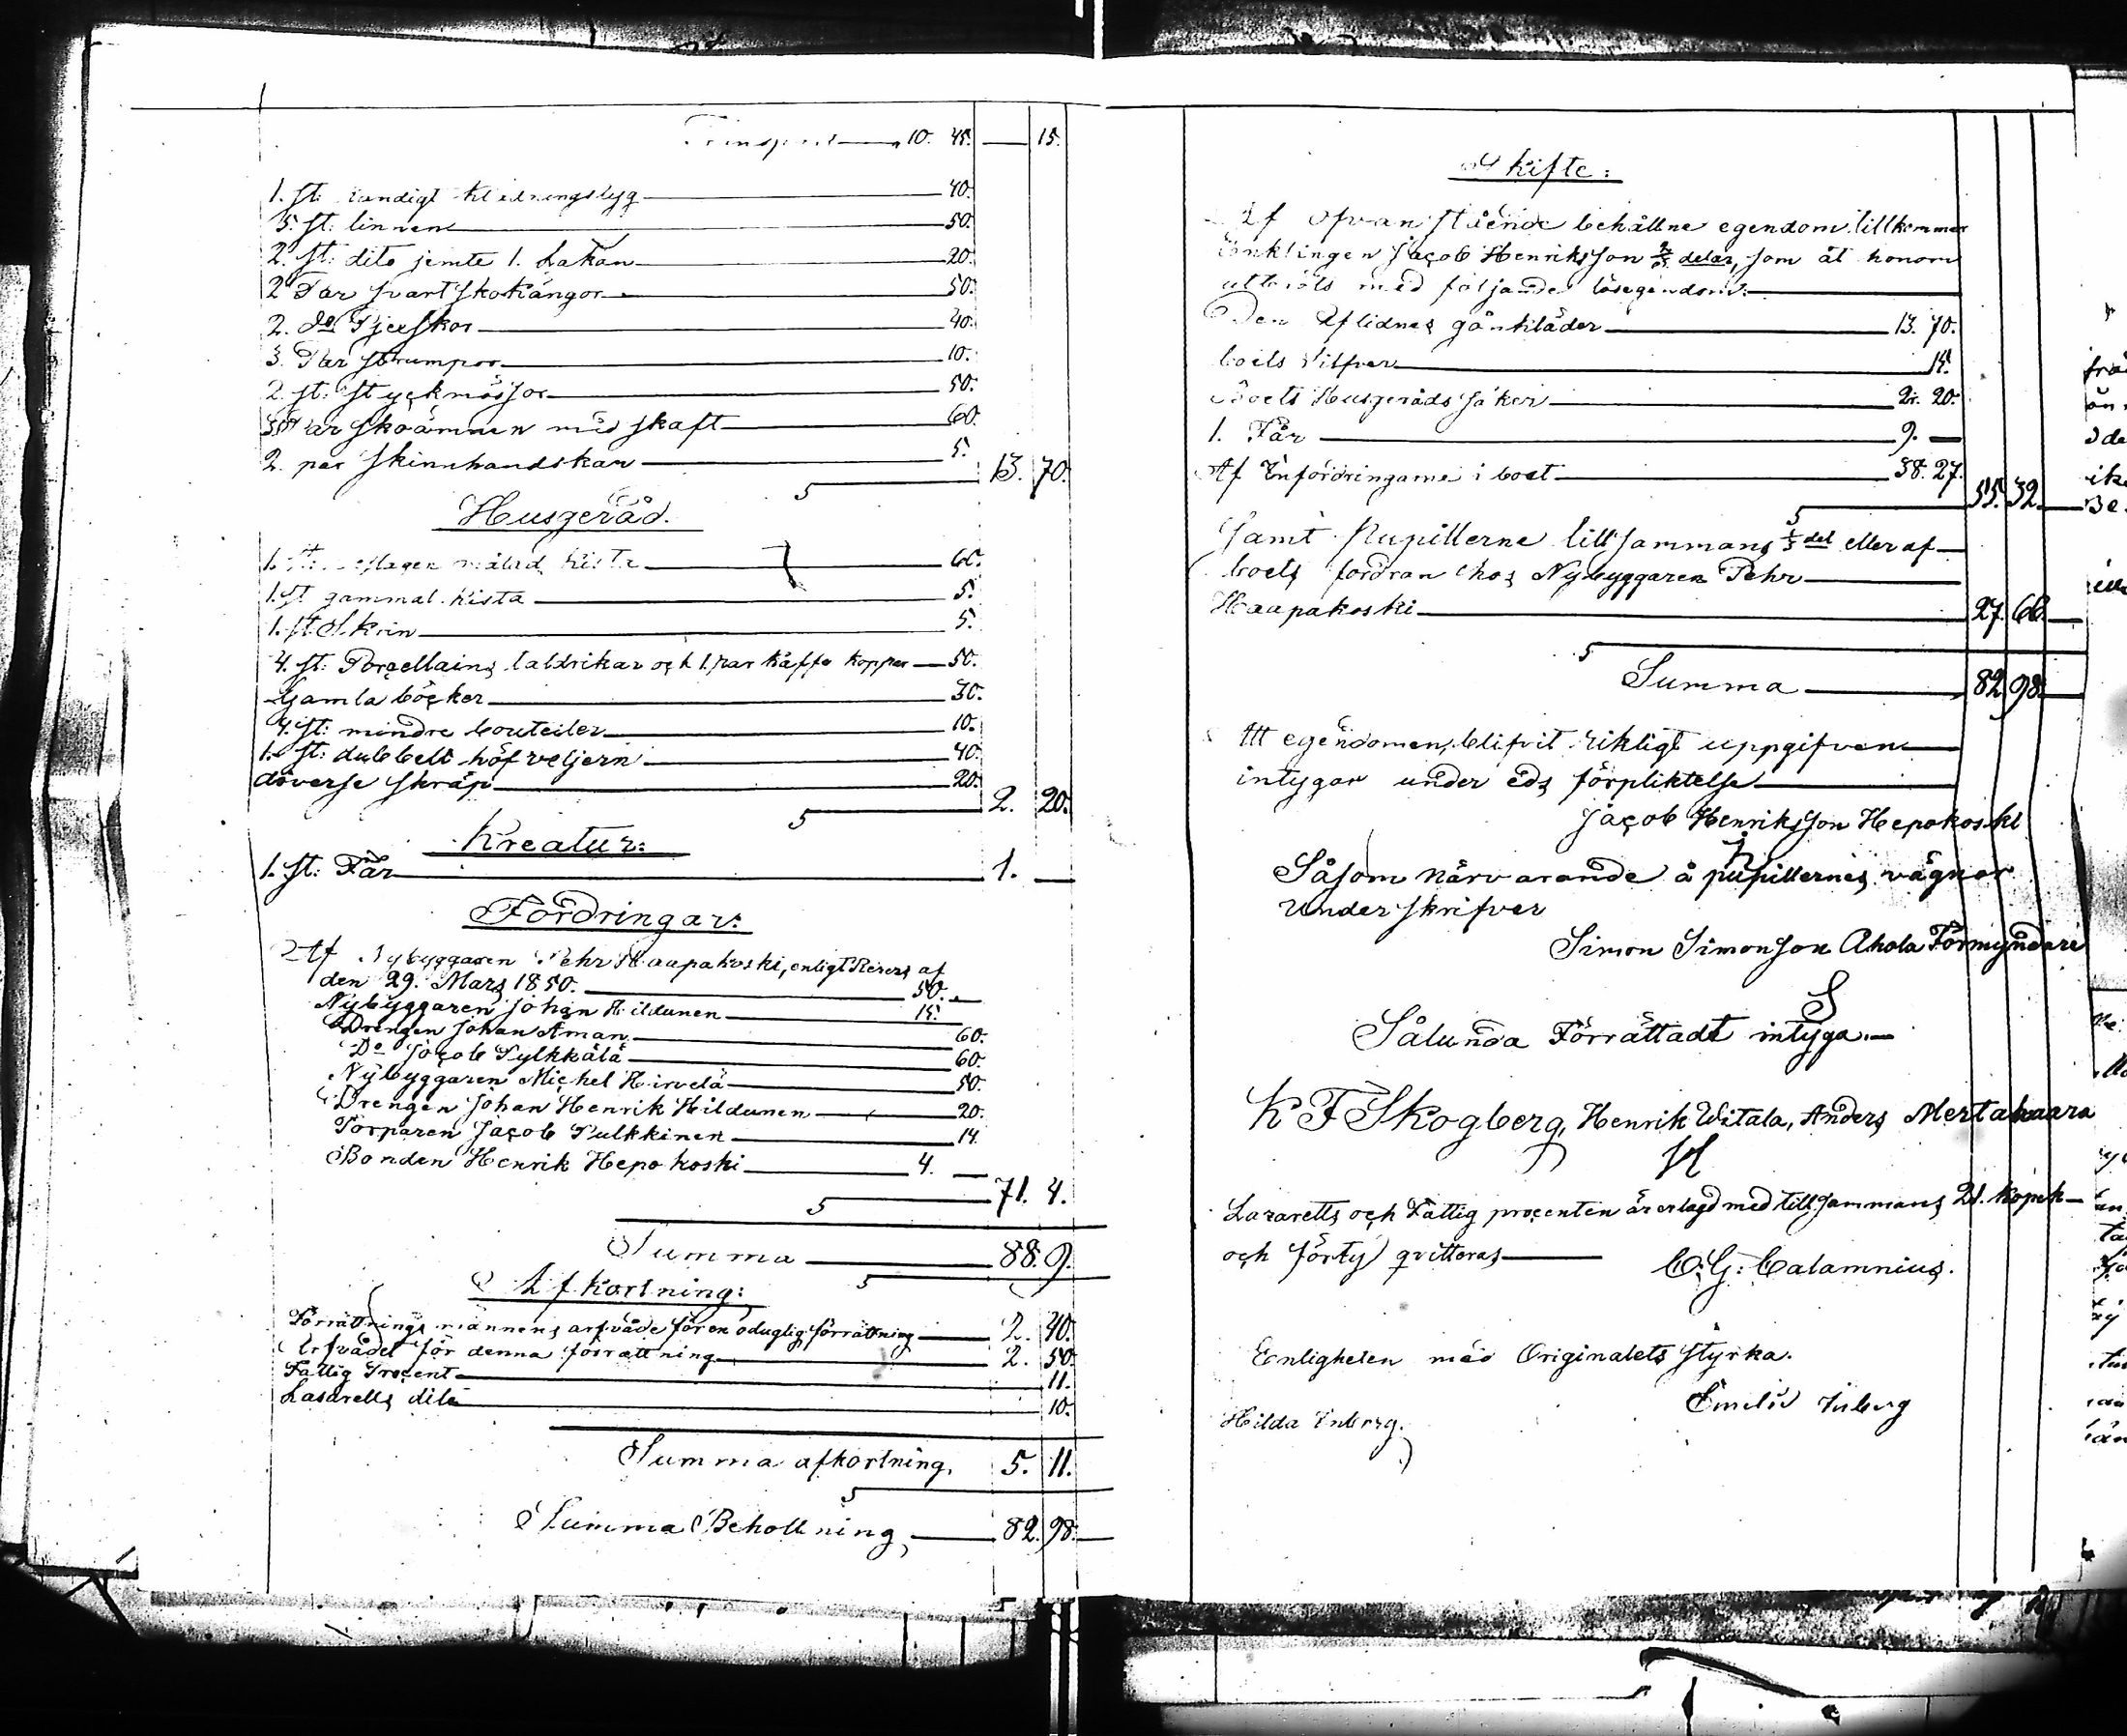 Transport 10. 45. — 15.
1. st: randigt klädningstyg 40.
5. st: linnen 50.
2. st: dito jemte 1. Lakan 20.
2 Par svart skokängor 50.
2. Do Pjexskor 40.
3. Par strumpor 10.
2. st: styckmössor 50.
3. Par skoämnen med skaft 60.
2. par skinnhandskar 5.
13. 70.
Husgeråd.
1. st: målad kista 60.
1. st gammal kista 5.
1. st. Skrin 5.
4. st: Porcellains taldrikar och 1. par kaffe koppar 50.
Gamla böcker 30.
4. st: mindre bouteiler 10.
1. st: dubbelt höfveljern 40.
diverse skräp 20.
2. 20.
Kreatur:
1. st: Får 1. —
Fordringar:
Af Nybyggaren Pehr Haapakoski, enligt Revers af
den 29. Mars 1850. 50. —
Nybyggaren Johan Hildunen 15.
Drengen Johan Aman 60.
Do Jacob Pylkkälä 60.
Nybyggaren Michel Hirvelä 50.
Drengen Johan Henrik Hildunen 20.
Torparen Jacob Pulkkinen 14.
Bonden Henrik Hepokoski 4. —
71. 4.
Summa 88. 9.
Afkortning:
Förrättnings männens arfvåde för en oduglig förrättning 2. 40.
Arfvådet för denna förrättning 2. 50.
Fattig Procent 11.
Lasaretts dito 10.
Summa afkortning, 5. 11.
Summa Behollning, 82. 98.
Skifte:
Af ofvanstående behållne egendom tillkommer
Enklingen Jacob Henriksson 2/3 delar, som åt honom
utbröts med följande lösegendom:
Den Aflidnes gånkläder 13. 70.
boets Silfver 15.
Boets Husgeråds saker 2. 20.
1. Får —
Af Enfordringarne i boet 38. 27.
55. 32
Samt Pupillerne tillsammans 1/3 del eller af
boets fordran hos Nybyggaren Pehr
Haapakoski 27. 66.
Summa 82. 98.
Att egendomen blifvit riktigt uppgifven
intygar under eds förpliktelse
Jacob Henriksson Hepokoski
Såsom närvarande å pupillernes vägnar
underskrifver
Simon Simonson Ahola Förmyndare
S
Sålunda Förrättadt intyga.
K F Skogberg, Henrik Witala, Anders Mertakaara
Lazaretts och Fattig procenten är erlagd med tillsammans 21. kopek
och förty qvitteras C: G: Calamnius.
Enligheten med Originalets styrka.
Emelie Enberg
Hilda Enberg.